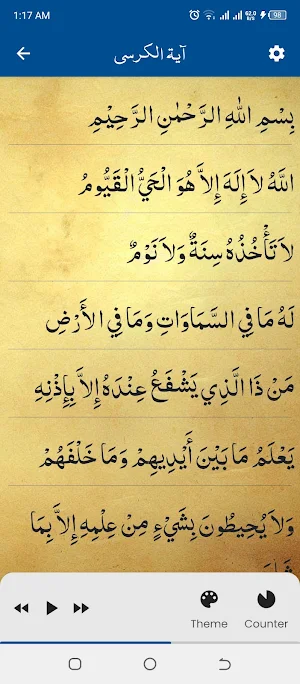 1:17 AM 62.0 B/s 98
آية الكرسى
بِسْمِ اللهِ الرَّحْمٰنِ الرَّحِيْمِ
اللَّهُ لاَ إِلَهَ إِلاَّ هُوَ الْحَيُّ الْقَيُّومُ
لاَ تَأْخُذُهُ سِنَةٌ وَلاَ نَوْمٌ
لَهُ مَا فِي السَّمَاوَاتِ وَمَا فِي الأَرْضِ
مَنْ ذَا الَّذِي يَشْفَعُ عِنْدَهُ إِلاَّ بِإِذْنِهِ
يَعْلَمُ مَا بَيْنَ أَيْدِيهِمْ وَمَا خَلْفَهُمْ
وَلاَ يُحِيطُونَ بِشَيْءٍ مِنْ عِلْمِهِ إِلاَّ بِمَا
Theme Counter